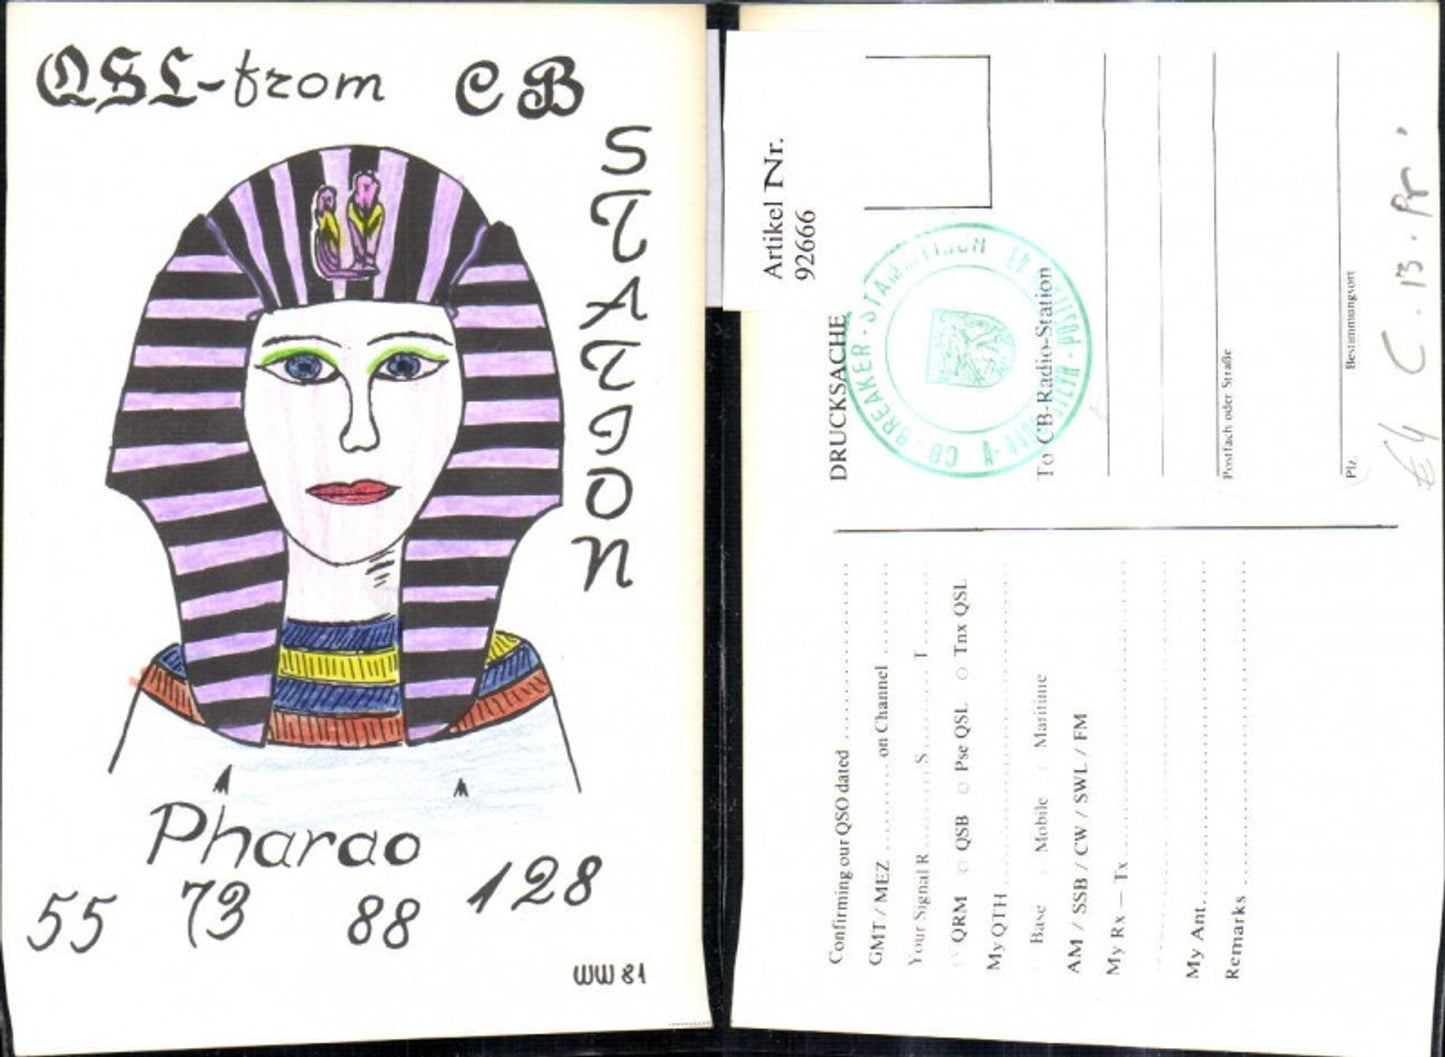 QSL-from CB
STATION
Pharao
55 73 88 128
WW 81
Artikel Nr.
92666
DRUCKSACHE
CB-BREAKER-STAMMTISCH
To CB-Radio-Station
Postfach oder Straße
Plz. Bestimmungsort
Confirming our QSO dated
GMT / MEZ on Channel
Your Signal R S T
QRM QSB Pse QSL Tnx QSL
My QTH
Base Mobile Maritime
AM / SSB / CW / SWL / FM
My Rx — Tx
My Ant.
Remarks